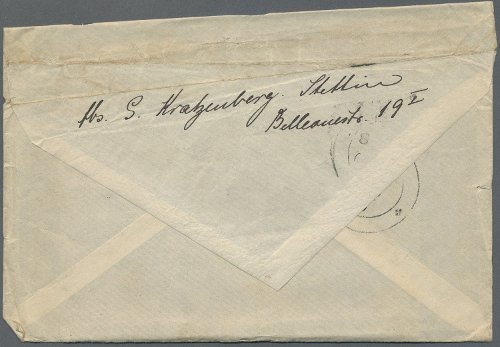 Abs. S. Kratzenberg. Stettin
Bellevuestr. 19 I
8